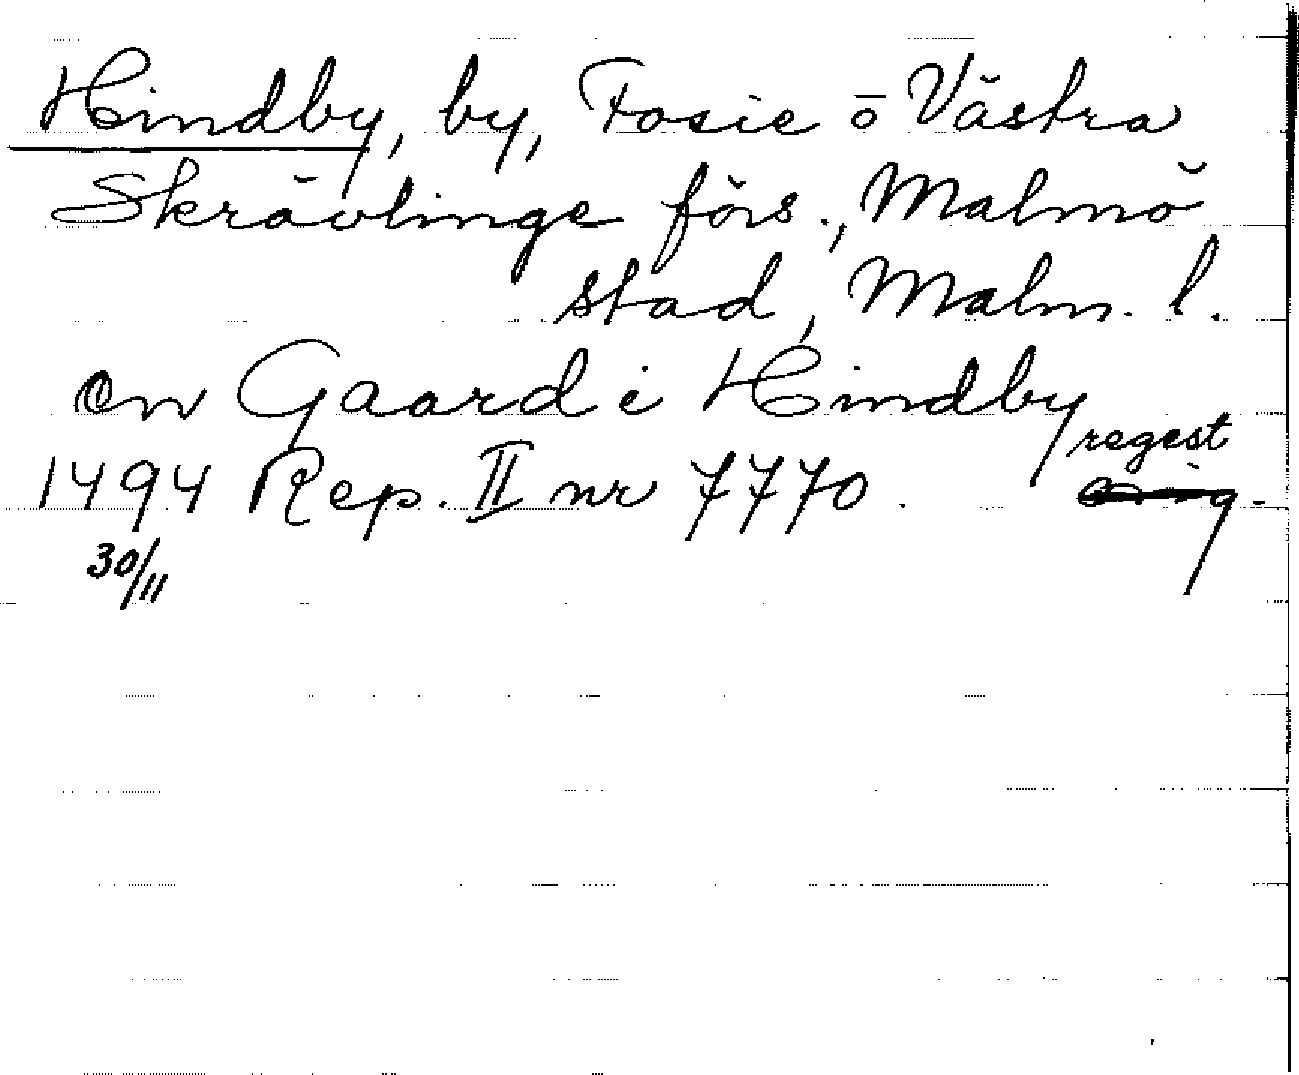 Hindby, by, Fosie o Västra
Skrävlinge förs., Malmö
stad, Malm. l.
en Gaard i Hindby
regest
1494 Rep. II nr 7770.
30/11